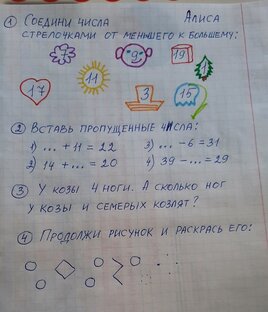 ① Соедини числа Алиса
стрелочками от меньшего к большему:
7 9 19
17 11 3 15 1
② Вставь пропущенные числа:
1) ... + 11 = 22 3) ... - 6 = 31
2) 14 + ... = 20 4) 39 - ... = 29
③ У козы 4 ноги. А сколько ног
у козы и семерых козлят?
④ Продолжи рисунок и раскрась его: